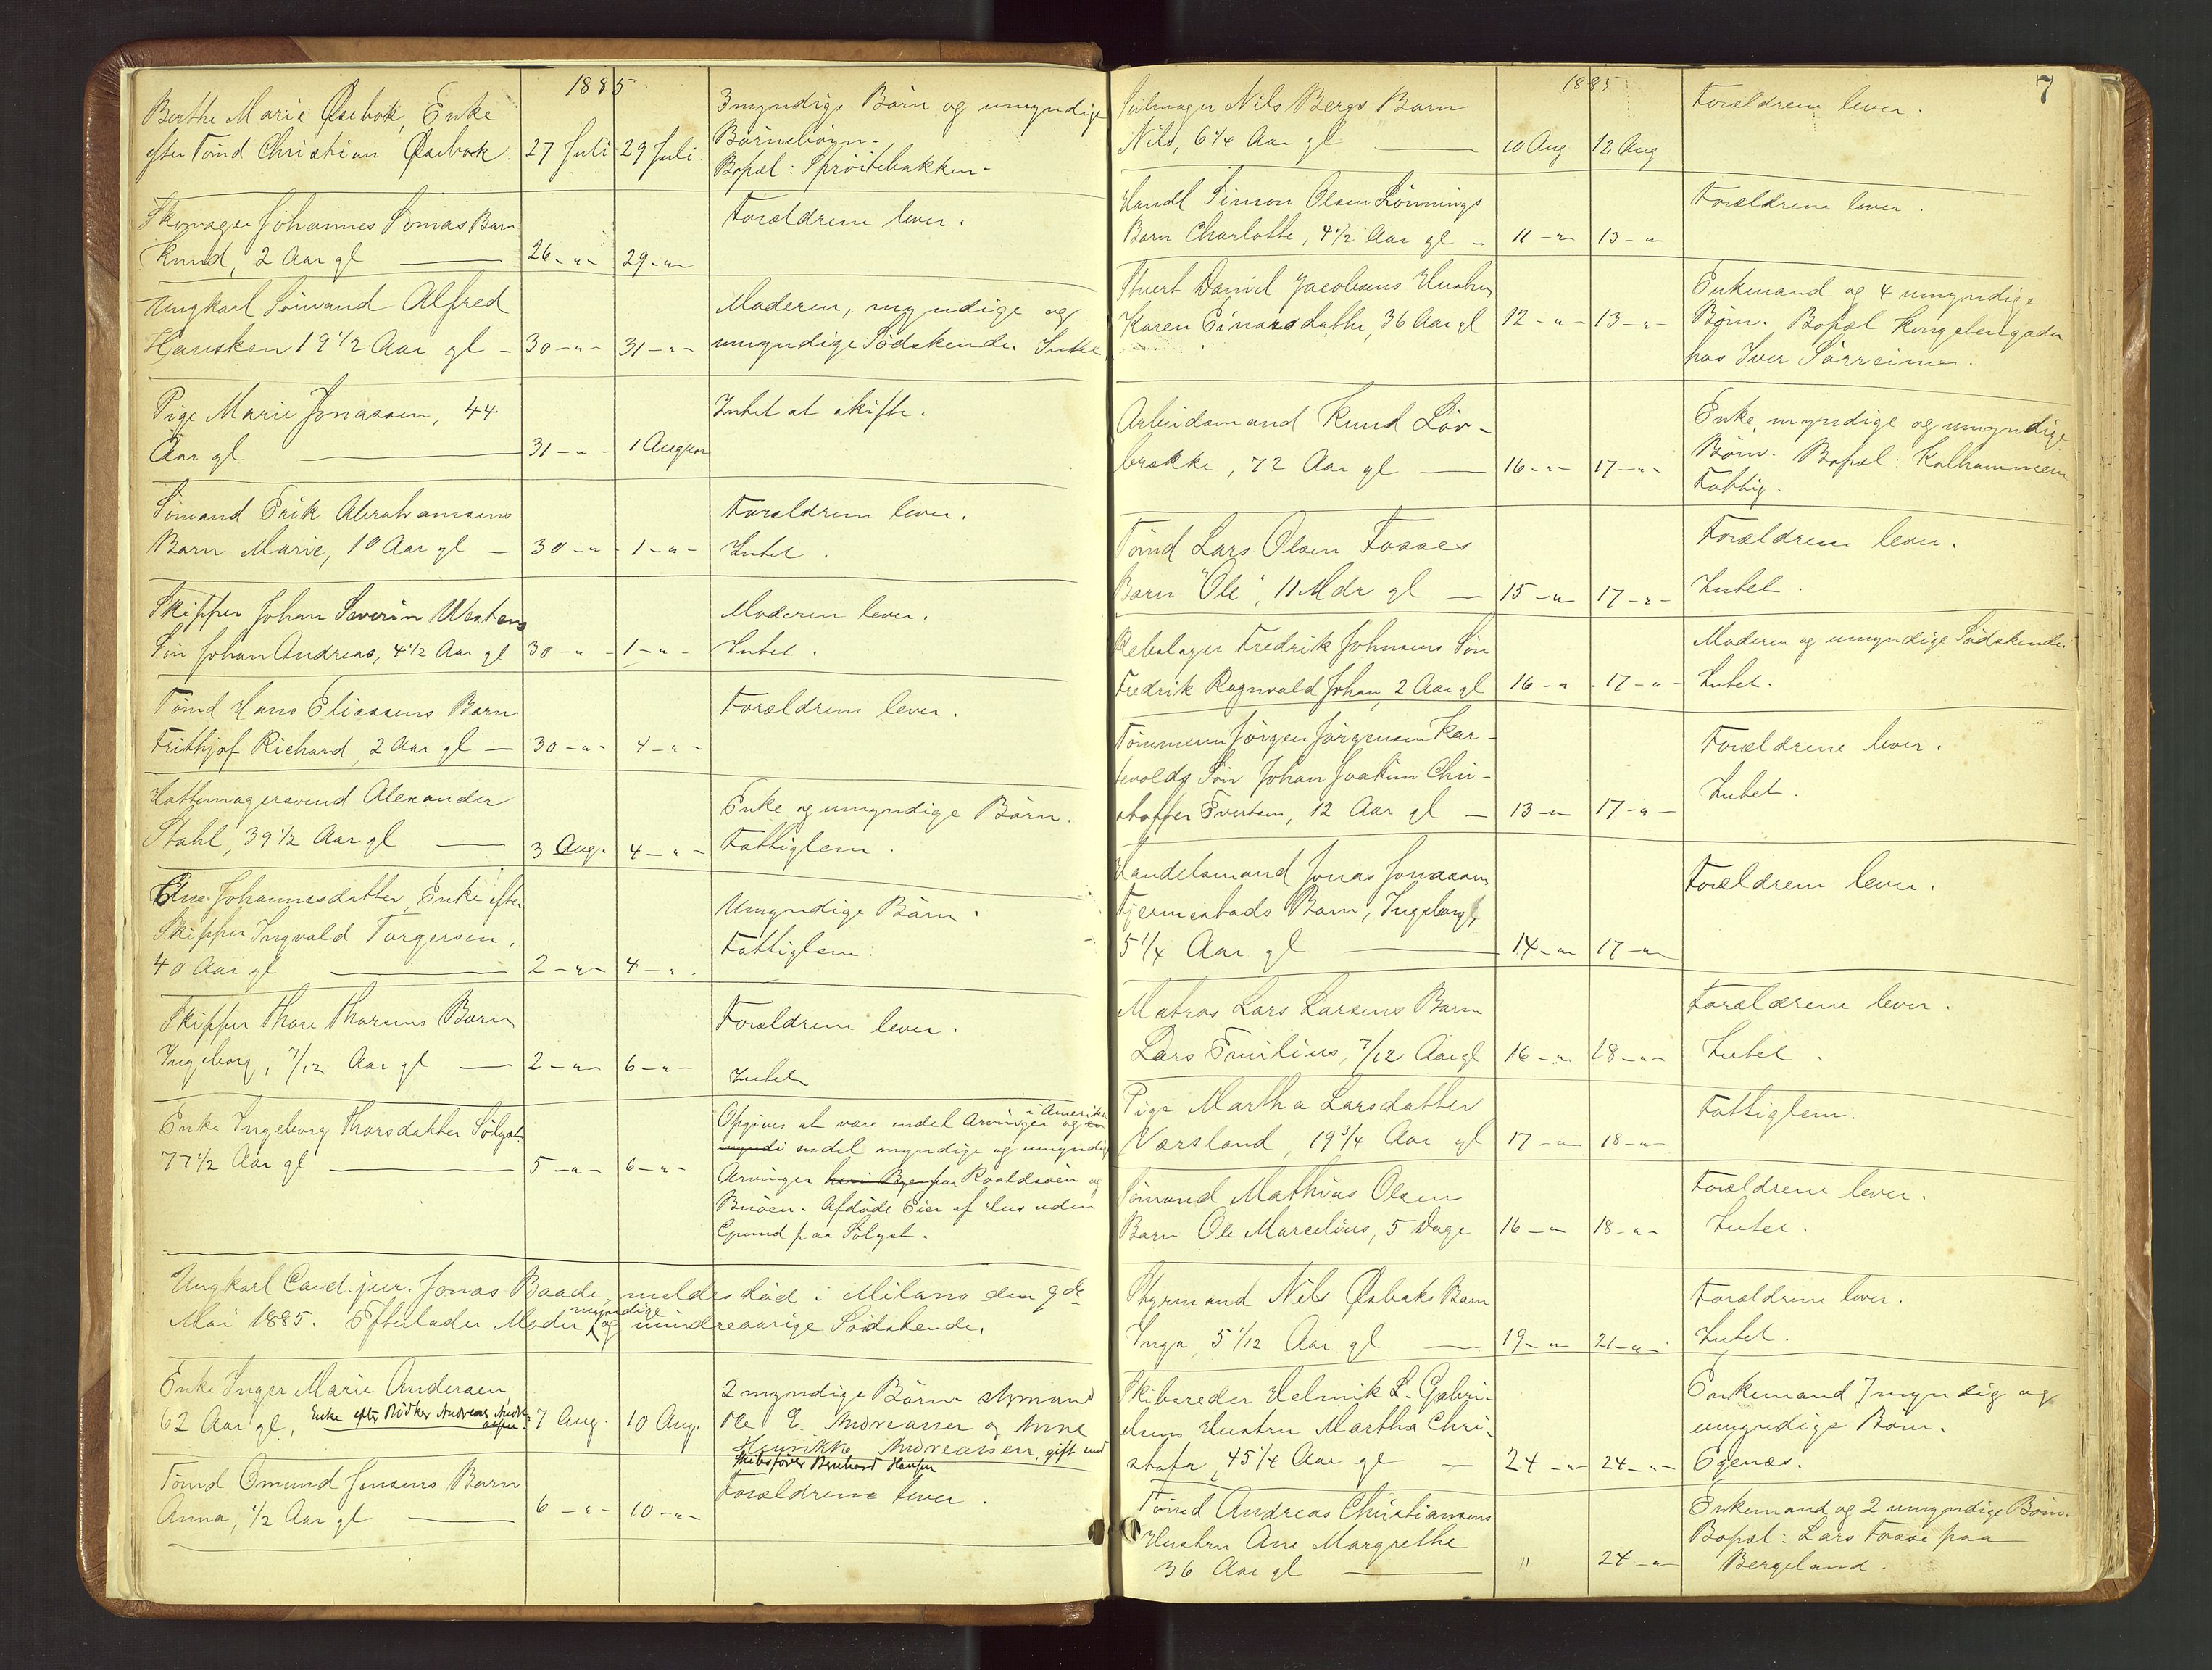 1885
Berthe Marie Øsebok, Enke
efter Tømd Christian Øsebok. 27 Juli 29 Juli
3 myndige Børn og umyndige
Børnebørn.
Bopæl: Sprøitebakken.
Skomager Johannes Sømas Barn
Knud, 2 Aar gl 26-"- 29-"-
Forældrene lever.
Ungkarl Sømand Alfred
Hausken 19 1/2 Aar gl - 30-"- 31-"-
Moderen, myndige og
umyndige Sødskende. Intet
Pige Marie Jonassen, 44
Aar gl 31-"- 1 August
Intet at skifte.
Sømand Erik Abrahamsens
Barn Marie, 10 Aar gl - 30-"- 1-"-
Forældrene lever.
Intet.
Skipper Johan Severin
Søn Johan Andreas, 4 1/2 Aar gl 30-"- 1-"-
Moderen lever.
Intet.
Tømd Hans Eliassens Barn
Frithjof Richard, 2 Aar gl - 30-"- 4-"-
Forældrene lever.
Hattemagersvend Alexander
Stahl, 39 1/2 Aar gl 3 Aug. 4-"-
Enke og umyndige Børn.
Fattiglem.
Johannesdatter, Enke efter
Skipper Ingvald Torgersen,
40 Aar gl 2-"- 4-"-
Umyndige Børn.
Fattiglem.
Skipper Thore Thorsens Barn
Ingeborg, 7/12 Aar gl 2-"- 6-"-
Forældrene lever.
Intet
Enke Ingeborg Thorsdatter Sølyst
77 1/2 Aar gl 5-"- 6-"-
Opgives at være endel Arvinger i Amerika og en
myndi endel myndige og umyndige
Arvinger Roaldsøen og
Buøen. Afdøde Eier af Hus uden
Grund paa Sølyst.
Ungkarl Cand. jur. Jonas Baade, meldes død i Milano den 9de
Mai 1885. Efterlader Moder, myndige og mindreaarige Sødskende.
Enke Inger Marie Andersen,
62 Aar gl, Enke efter Bødker Andreas Andre-
assen. 7 Aug. 10 Aug.
2 myndige Børn Styrmand
Ole E. Andreassen og Anne
Henrikke Andreassen, gift med
Skibsfører Bernhard Hansen
Tømd Omund Jensens Barn
Anna, 1/2 Aar gl 6-"- 10-"-
Forældrene lever.
7
1885
Seilmager Nils Bergs Barn
Nils, 6 1/4 Aar gl 10 Aug 12 Aug
Forældrene lever.
Handl Simon Olsen Lønnings
Barn Charlotte, 4 1/2 Aar gl - 11-"- 13-"-
Forældrene lever.
Stuert Daniel Jacobsens Hustru
Karen Einarsdatter, 36 Aar gl 12-"- 13-"-
Enkemand og 4 umyndige
Børn. Bopæl Kongsbergaden
hos Iver Sørreimer.
Arbeidsmand Knud Løv-
brekke, 72 Aar gl 16-"- 17-"-
Enke, myndige og umyndige
Børn. Bopæl: Kalhammeren
Fattig.
Tømd Lars Olsen Fosses
Barn Ole, 11 Mdr gl 15-"- 17-"-
Forældrene lever.
Intet.
Rebslager Fredrik Johnsens Søn
Fredrik Ragnvald Johan, 2 Aar gl 16-"- 17-"-
Moderen og umyndige Sødskende.
Intet.
Tømmerm Jørgen Jørgensen Kar-
tevolds Søn Johan Joakim Chri-
stoffer Evertsen, 12 Aar gl - 13-"- 17-"-
Forældrene lever.
Intet.
Handelsmand Jonas Jonassen
Tjermestads Barn, Ingeborg,
5 1/4 Aar gl 14-"- 17-"-
Forældrene lever.
Matros Lars Larsens Barn
Lars Emilius, 7/12 Aar gl 16-"- 18-"-
Forældrene lever.
Intet.
Pige Martha Larsdatter
Varsland, 19 3/4 Aar gl 17-"- 18-"-
Fattiglem.
Sømand Mathias Olsen
Barn Ole Marselius, 5 Dage 16-"- 18-"-
Forældrene lever.
Intet.
Styrmand Nils Øsbaks Barn
Inga, 5 1/12 Aar gl 19-"- 21-"-
Forældrene lever.
Intet.
Skibsreder Helmik L. Gabri-
elsens Hustru Martha Chri-
stofa, 45 1/4 Aar gl 24-"- 24-"-
Enkemand, 1 myndig og
umyndige Børn.
Egenæs.
Tømd Andreas Christiansens
Hustru Ane Margrethe
36 Aar gl " 24-"-
Enkemand og 2 umyndige Børn.
Bopæl: Lars Fosse paa
Bergeland.